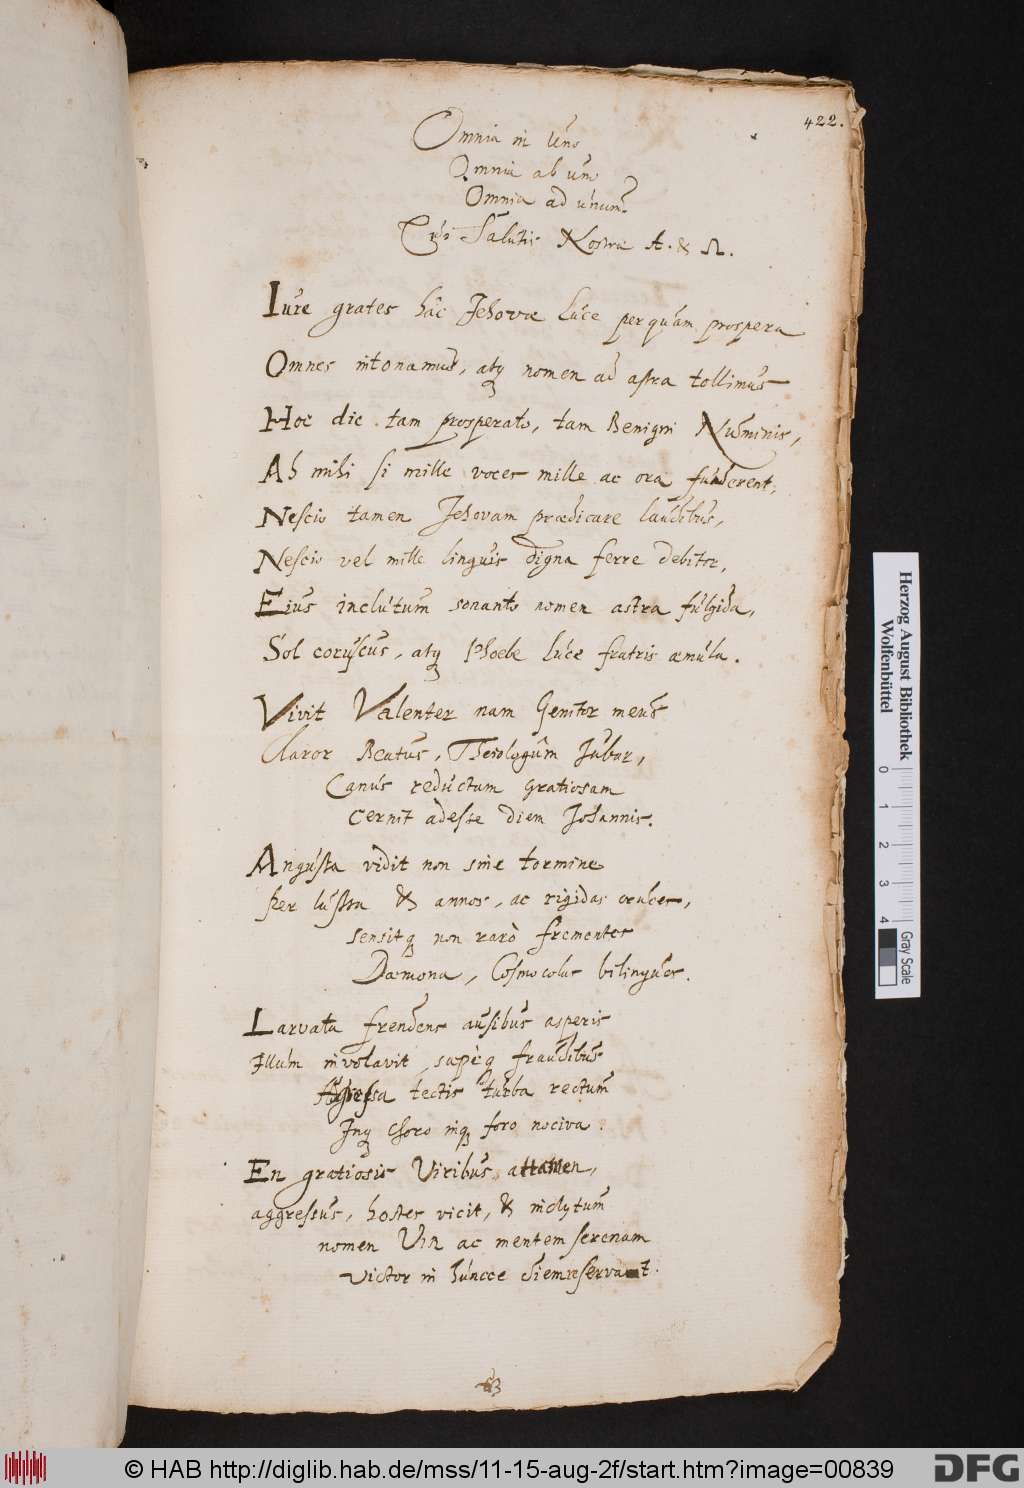 422.
Omnia in Uno
Omnia ab uno
Omnia ad unum
Salutis Nostræ A. & Ω.
Iure grates hâc Jehovæ luce perquam prospera
Omnes intonamus, atq nomen ad astra tollimus
Hoc die tam prosperato, tam Benigni Numinis,
Ah mihi si mille voces mille ac ora funderent,
Nescio tamen Jehovam prædicare laudibus,
Nescio vel mille linguis digna ferre debitor,
Eius inclutum sonanto nomen astra fulgida,
Sol coruscus, atq Phoebe luce fratris æmula.
Vivit Valenter nam Genitor meus
Claror Beatus, Theologûm Jubar,
Canus reductam gratiosam
Cernit adeste diem Johannis.
Angusta vidit non sine tormine
Per lustra & annos, ac rigidas cruces,
Sensitq non rarò frementes
Dæmona, Cosmocolas bilingues.
Larvata frendens ausibus asperis
Illum involavit, sæpèq fraudibus
tectis turba rectum
Inq choro inq foro nociva.
En gratiosis Viribus attamen,
aggressus, hostes vicit, & inclytum
nomen Vir ac mentem serenam
Victor in huncce diem reservat.
Herzog August Bibliothek
Wolfenbüttel
0 1 2 3 4
Gray Scale
© HAB http://diglib.hab.de/mss/11-15-aug-2f/start.htm?image=00839
DFG